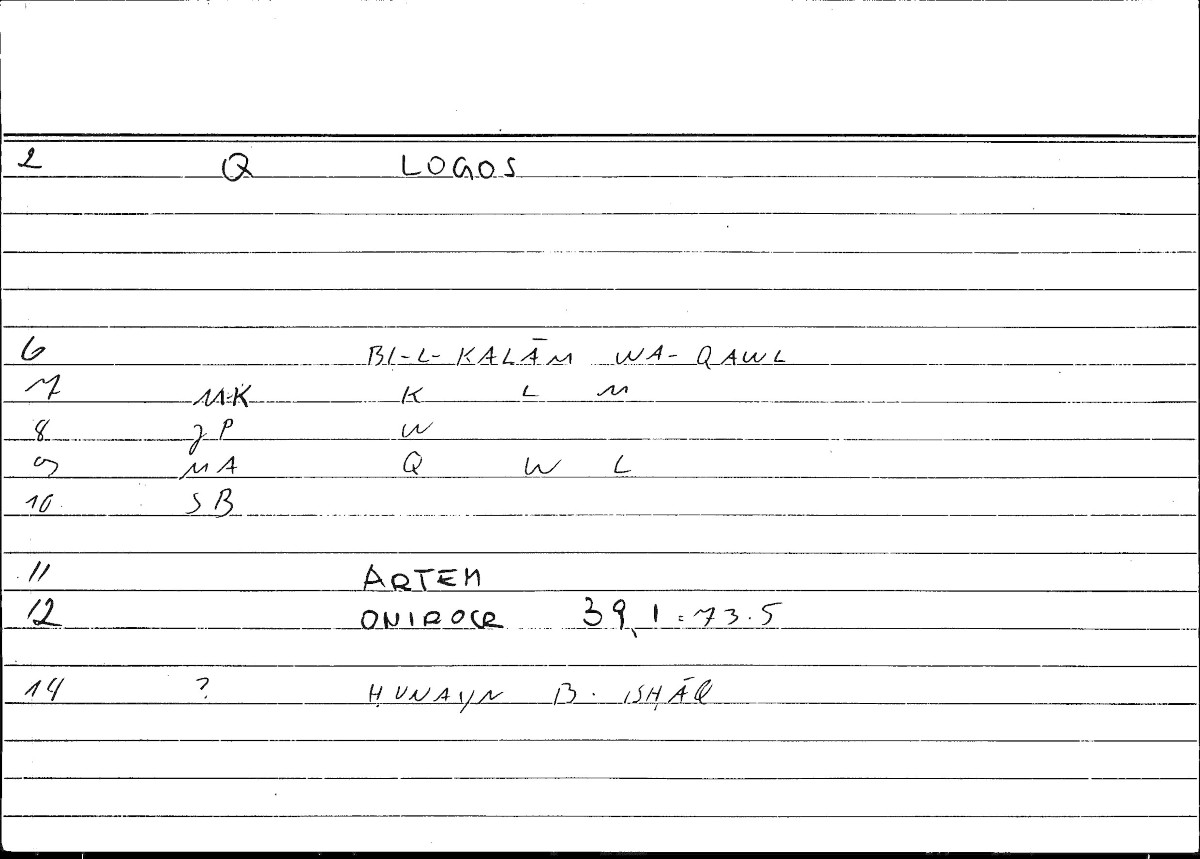 2 Q LOGOS
6 BI-L-KALĀM WA-QAWL
7 MK K L M
8 JP W
9 MA Q W L
10 SB
11 ARTEM
12 ONIROCR 39,1 : 73.5
14 ? ḤUNAYN B. ISḤĀQ